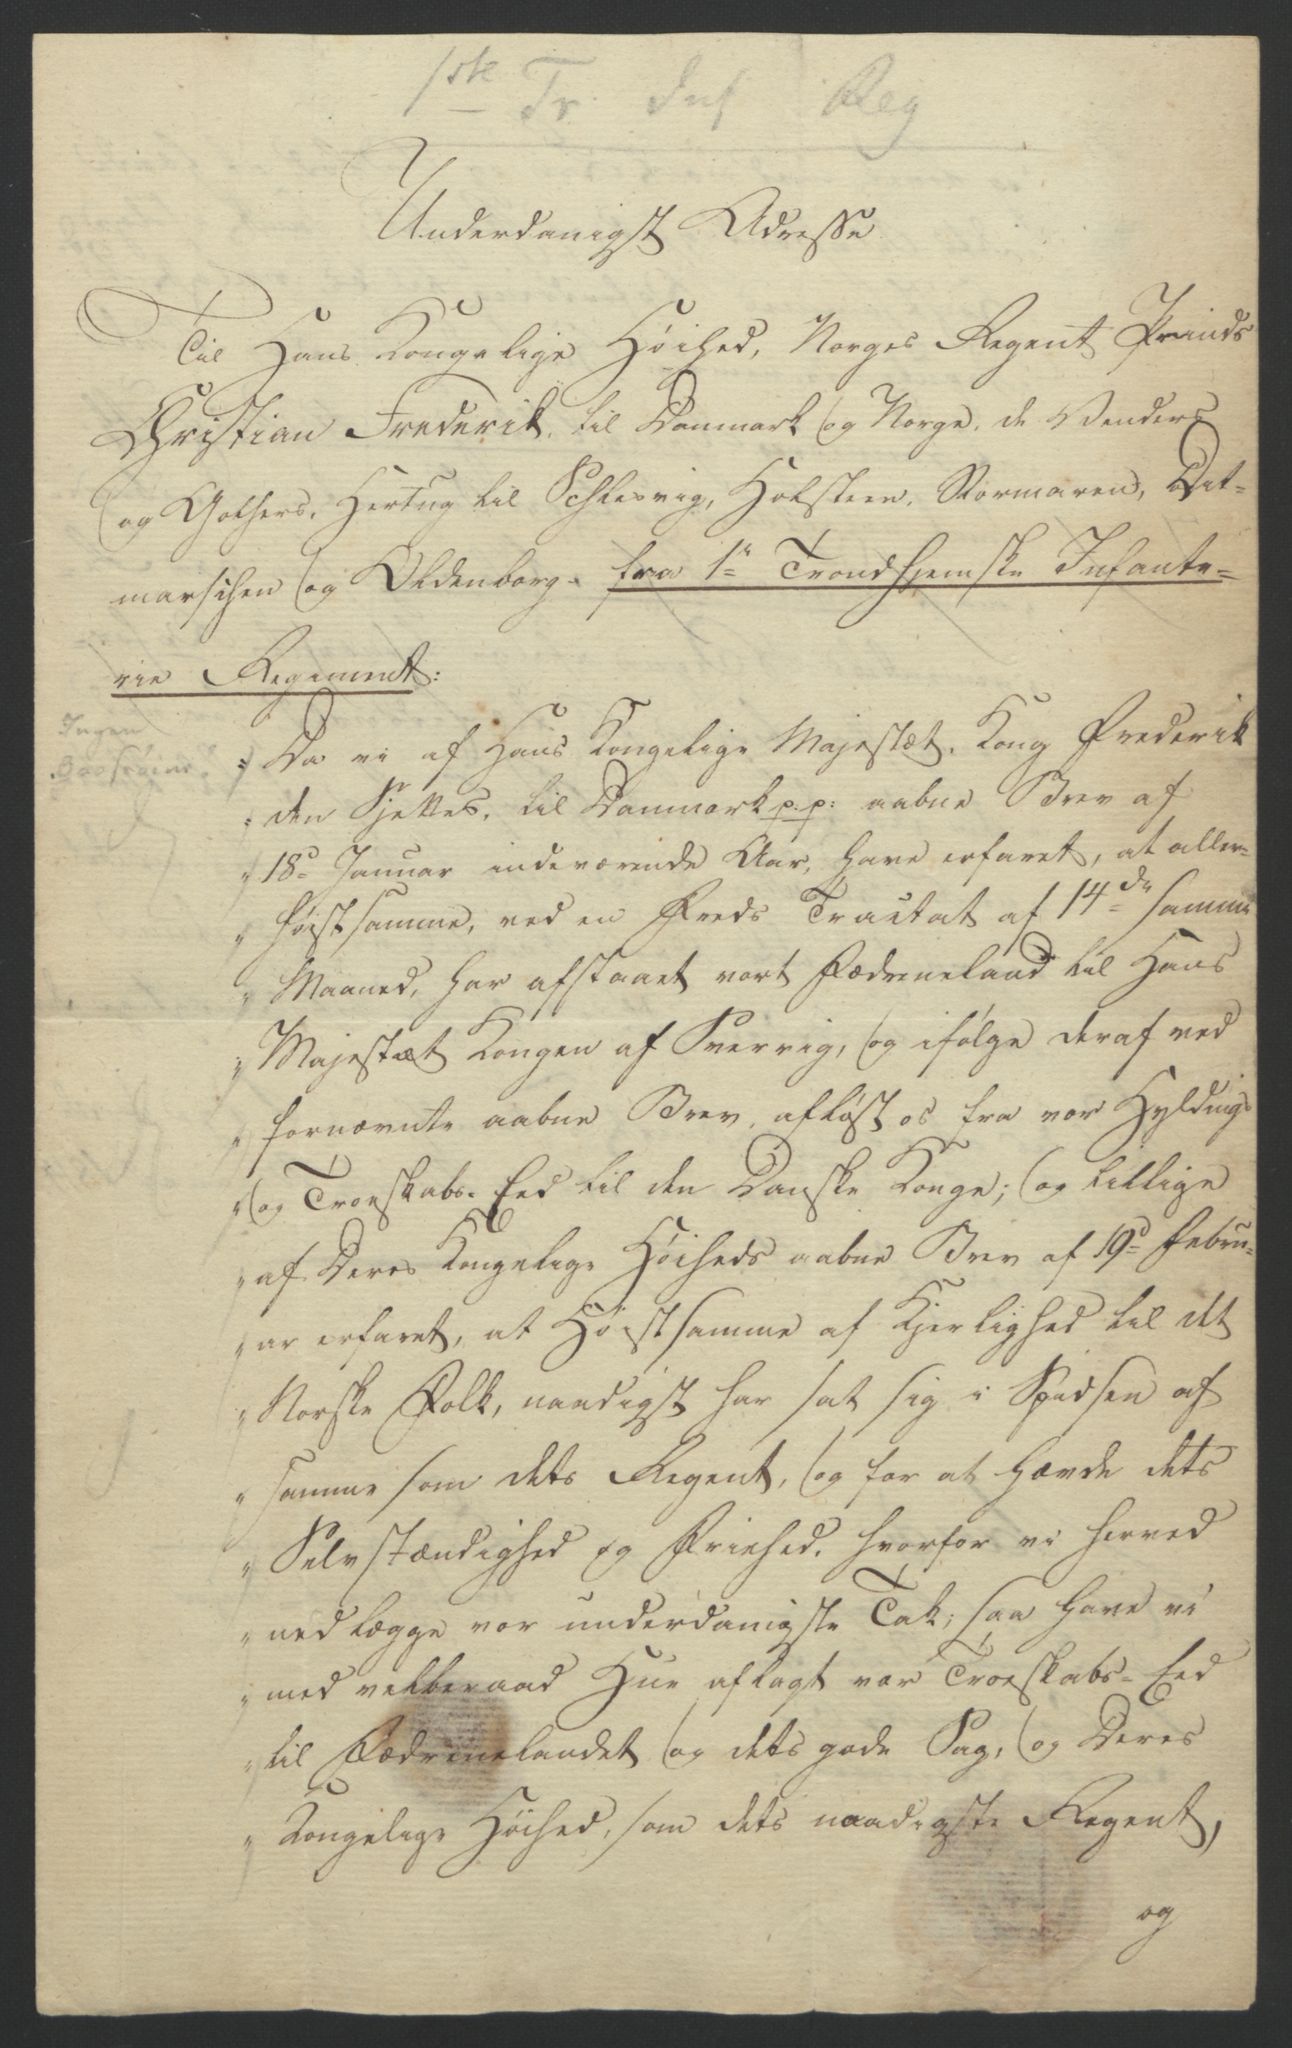 1ste Tr. Inf Reg
Underdanigst Adresse
Til Hans Kongelige Höihed, Norges Regent Prinds
Christian Frederik, til Danmark og Norge, de Venders
og Gothers, Hertug til Schlesvig, Holsteen, Stormaren, Dit-
marschen og Oldenborg. fra 1e Trondhjemske Infante-
rie Regiment:
Ingen
„ Da vi af Hans Kongelige Majestæt, Kong Frederik
„ den Sjettes, til Danmark p. p: aabne Brev af
„ 18d Januar indeværende Aar, have erfaret, at aller-
„ höistsamme, ved en Freds Tractat af 14de samme
„ Maaned, har afstaaet vort Fædreneland til Hans
„ Majestæt Kongen af Sverrig, og ifölge deraf ved
„ fornævnte aabne Brev, aflöst os fra vor Hyldings
„ og Troeskabs-Eed til den Danske Konge; og tillige
„ af Deres Kongelige Höiheds aabne Brev af 19d Febru-
„ ar erfaret, at Höistsamme af Kjerlighed til det
„ Norske Folk, naadigst har sat sig i Spidsen af
„ samme som dets Regent, og for at hævde dets
„ Selvstændighed og Friehed, hvorfor vi herved
„ nedlægge vor underdanigste Tak; saa have vi
„ med velberaad Hue aflagt vor Troeskabs-Eed
„ til Fædrenelandet og dets gode Sag, og Deres
„ Kongelige Höihed, som dets naadigste Regent,
og